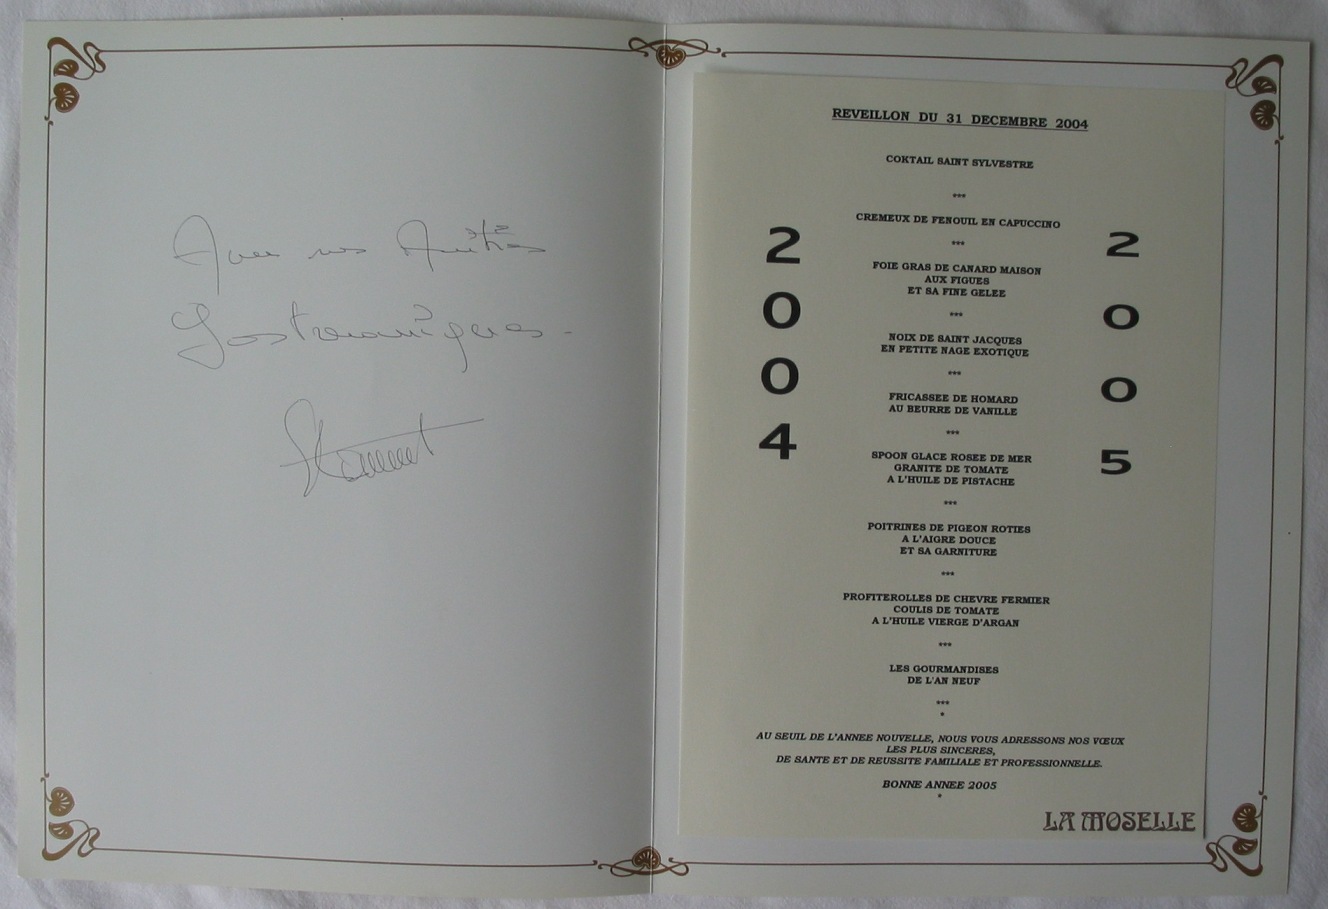 Avec nos Amitiés
Gastronomiques -
REVEILLON DU 31 DECEMBRE 2004
COKTAIL SAINT SYLVESTRE
***
CREMEUX DE FENOUIL EN CAPUCCINO
***
FOIE GRAS DE CANARD MAISON
AUX FIGUES
ET SA FINE GELEE
***
NOIX DE SAINT JACQUES
EN PETITE NAGE EXOTIQUE
***
FRICASSEE DE HOMARD
AU BEURRE DE VANILLE
***
SPOON GLACE ROSEE DE MER
GRANITE DE TOMATE
A L'HUILE DE PISTACHE
***
POITRINES DE PIGEON ROTIES
A L'AIGRE DOUCE
ET SA GARNITURE
***
PROFITEROLLES DE CHEVRE FERMIER
COULIS DE TOMATE
A L'HUILE VIERGE D'ARGAN
***
LES GOURMANDISES
DE L'AN NEUF
***
*
AU SEUIL DE L'ANNEE NOUVELLE, NOUS VOUS ADRESSONS NOS VŒUX
LES PLUS SINCERES,
DE SANTE ET DE REUSSITE FAMILIALE ET PROFESSIONNELLE.
BONNE ANNEE 2005
*
2
0
0
4
2
0
0
5
LA MOSELLE